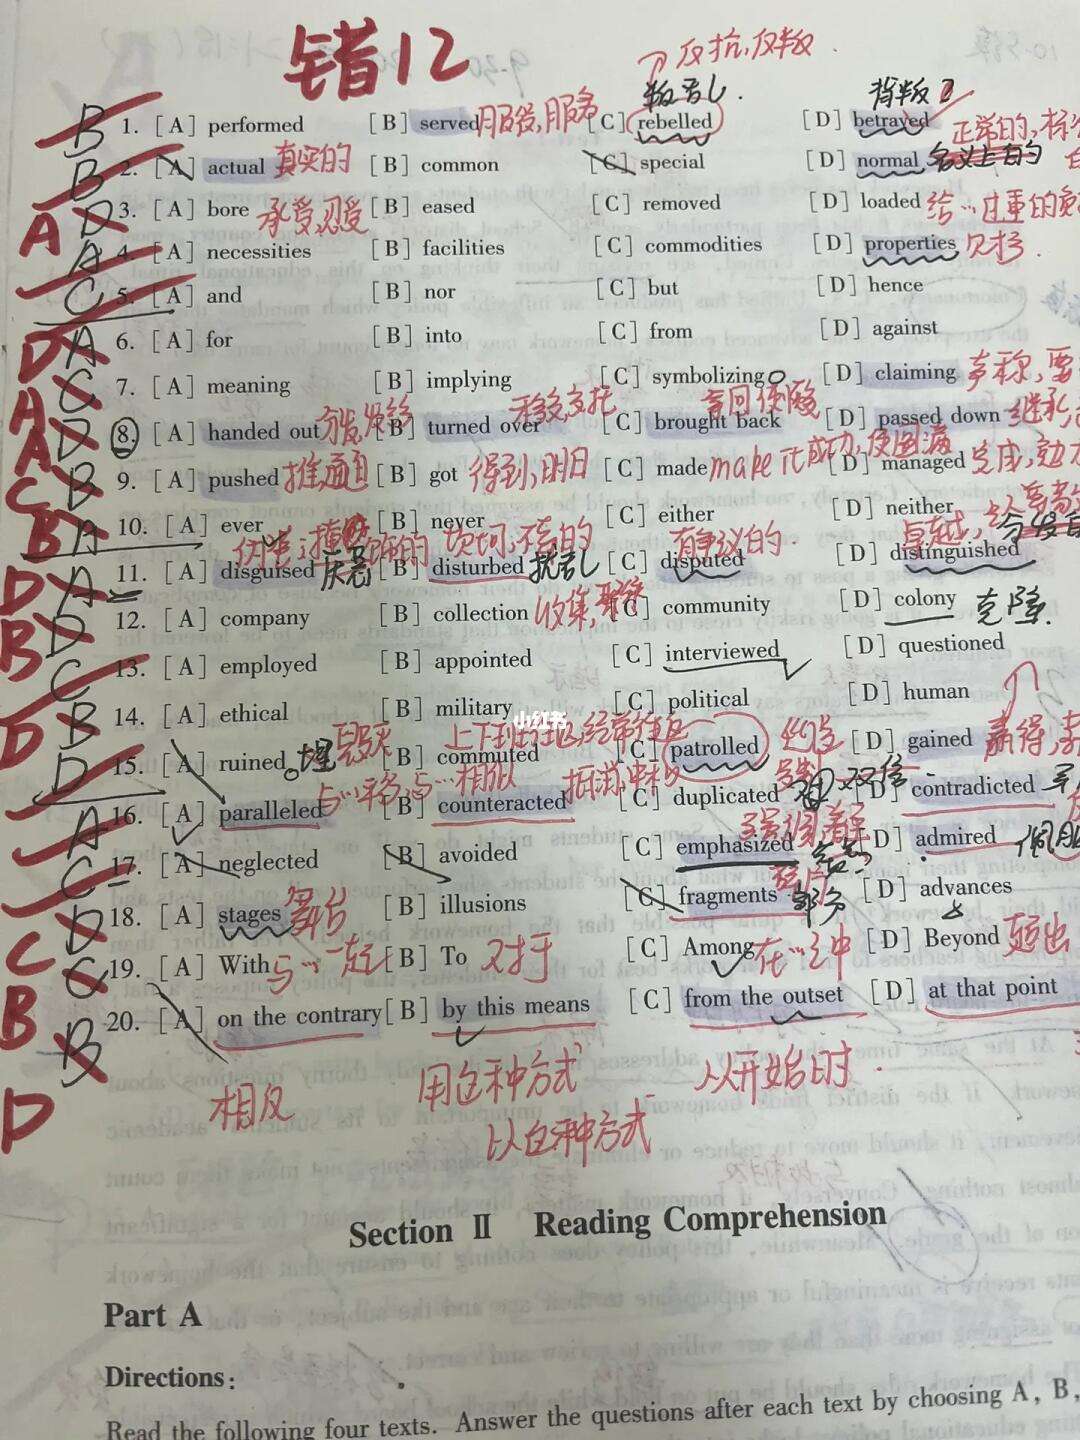 错12
反抗,反叛
叛乱. 背叛
B 1. [A] performed [B] served 服役,服务 [C] rebelled [D] betrayed 正常的,标
B 2. [A] actual 真实的 [B] common [C] special [D] normal 名义上的
A D 3. [A] bore 承受,忍受 [B] eased [C] removed [D] loaded 给…过重的负
A 4. [A] necessities [B] facilities [C] commodities [D] properties
C 5. [A] and [B] nor [C] but [D] hence
D A 6. [A] for [B] into [C] from [D] against
A C 7. [A] meaning [B] implying [C] symbolizing [D] claiming 声称,要
移交,交托
A D 8. [A] handed out 分发 [B] turned over [C] brought back [D] passed down 继承
C B 9. [A] pushed 推,逼迫 [B] got 得到,明白 [C] made make it成功,使圆满 [D] managed 完成,
B A 10. [A] ever [B] never [C] either [D] neither
伪装;掩饰的 有争议的. 卓越,
D A 11. [A] disguised [B] disturbed 扰乱 [C] disputed [D] distinguished
B D 12. [A] company [B] collection 收集, [C] community [D] colony
C 13. [A] employed [B] appointed [C] interviewed [D] questioned
D B 14. [A] ethical [B] military [C] political [D] human
小红书
D 15. [A] ruined 毁灭 [B] commuted [C] patrolled 巡逻 [D] gained 赢得,
与…平移,与…相似 抵消,中和
A 16. [A] paralleled [B] counteracted [C] duplicated [D] contradicted
强调,着重
C 17. [A] neglected [B] avoided [C] emphasized [D] admired 佩服
C D 18. [A] stages 舞台 [B] illusions [C] fragments 部分 [D] advances
B C 19. [A] With 与…一起 [B] To 对于 [C] Among 在…之中 [D] Beyond 超出
D B 20. [A] on the contrary [B] by this means [C] from the outset [D] at that point
相反 用这种方式 从开始时.
以这种方式
Section II Reading Comprehension
Part A
Directions:
Read the following four texts. Answer the questions after each text by choosing A, B,